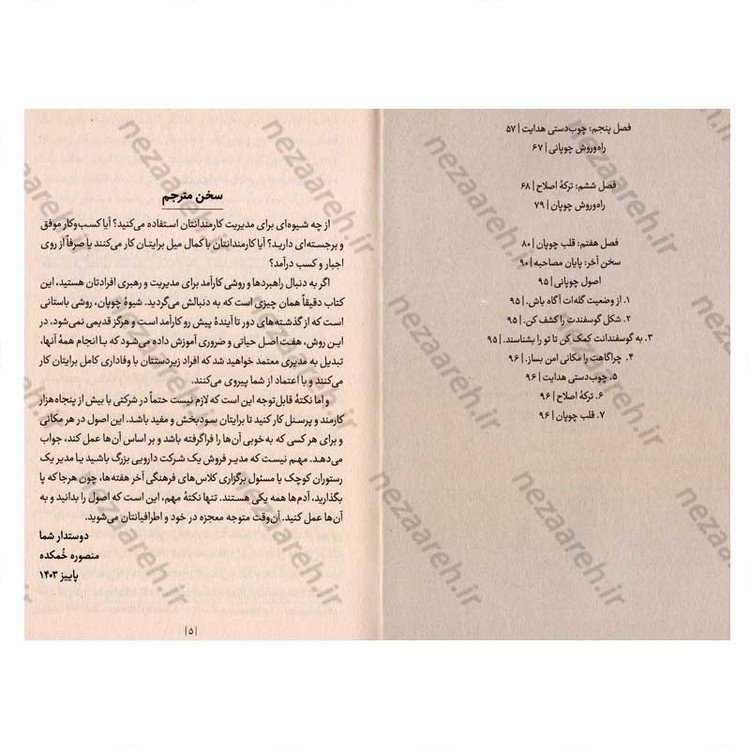 فصل پنجم: چوب‌دستی هدایت | ۵۷
راه‌وروش چوپانی | ۶۷
فصل ششم: ترکهٔ اصلاح | ۶۸
راه‌وروش چوپان | ۷۹
فصل هفتم: قلب چوپان | ۸۰
سخن آخر: پایان مصاحبه | ۹۰
اصول چوپانی | ۹۵
۱. از وضعیت گله‌ات آگاه باش. | ۹۵
۲. شکل گوسفندت را کشف کن. | ۹۵
۳. به گوسفندانت کمک کن تا تو را بشناسند. | ۹۵
۴. چراگاهت را مکانی امن بساز. | ۹۶
۵. چوب‌دستی هدایت | ۹۶
۶. ترکهٔ اصلاح | ۹۶
۷. قلب چوپان | ۹۶
سخن مترجم
از چه شیوه‌ای برای مدیریت کارمندانتان استفاده می‌کنید؟ آیا کسب‌وکار موفق
و برجسته‌ای دارید؟ آیا کارمندانتان با کمال میل برایتان کار می‌کنند یا صرفاً از روی
اجبار و کسب درآمد؟
اگر به دنبال راهبردها و روشی کارآمد برای مدیریت و رهبری افرادتان هستید، این
کتاب دقیقاً همان چیزی است که به دنبالش می‌گردید. شیوهٔ چوپان، روشی باستانی
است که از گذشته‌های دور تا آیندهٔ پیش رو کارآمد است و هرگز قدیمی نمی‌شود. در
این روش، هفت اصل حیاتی و ضروری آموزش داده می‌شود که با انجام همهٔ آنها،
تبدیل به مدیری معتمد خواهید شد که افراد زیردستتان با وفاداری کامل برایتان کار
می‌کنند و با اعتماد از شما پیروی می‌کنند.
و اما نکتهٔ قابل‌توجه این است که لازم نیست حتماً در شرکتی با بیش از پنجاه‌هزار
کارمند و پرسنل کار کنید تا برایتان سودبخش و مفید باشد. این اصول در هر مکانی
و برای هر کسی که به‌خوبی آن‌ها را فراگرفته باشد و بر اساس آن‌ها عمل کند، جواب
می‌دهد. مهم نیست که مدیر فروش یک شرکت دارویی بزرگ باشید یا مدیر یک
رستوران کوچک یا مسئول برگزاری کلاس‌های فرهنگی آخر هفته‌ها، چون هرجا که پا
بگذارید، آدم‌ها همه یکی هستند. تنها نکتهٔ مهم، این است که اصول را بدانید و به
آن‌ها عمل کنید. آن‌وقت متوجه معجزه در خود و اطرافیانتان می‌شوید.
دوستدار شما
منصوره خُمکده
پاییز ۱۴۰۳
| ۵ |
nezaareh.ir